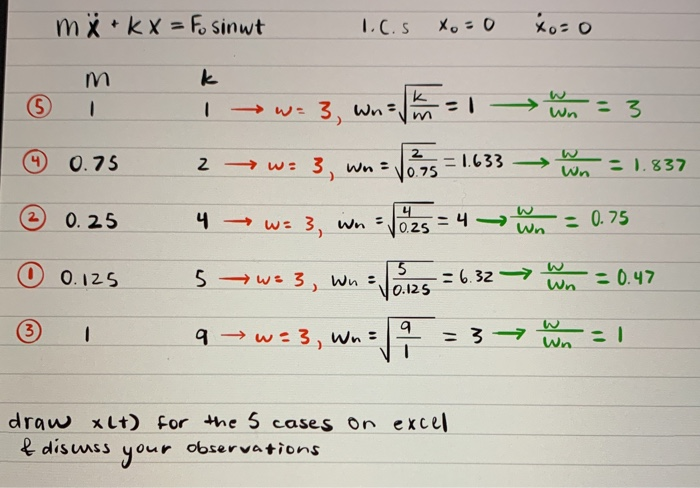 mẍ + kx = F₀ sinwt I.C.s x₀ = 0 ẋ₀ = 0
m k
⑤ 1 1 → w = 3, wn = √(k/m) = 1 → w/wn = 3
④ 0.75 2 → w = 3, wn = √(2/0.75) = 1.633 → w/wn = 1.837
② 0.25 4 → w = 3, wn = √(4/0.25) = 4 → w/wn = 0.75
① 0.125 5 → w = 3, wn = √(5/0.125) = 6.32 → w/wn = 0.47
③ 1 9 → w = 3, wn = √(9/1) = 3 → w/wn = 1
draw x(t) for the 5 cases on excel
& discuss your observations